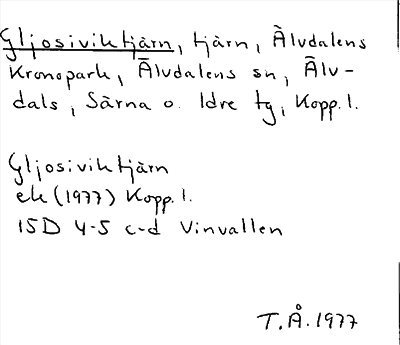 Gljosiviktjärn, tjärn, Älvdalens
Kronopark, Älvdalens sn, Älv-
dals, Särna o. Idre tg, Kopp. l.
Gljosiviktjärn
ek (1977) Kopp. l.
15D 4-5 c-d Vinvallen
T.Å. 1977